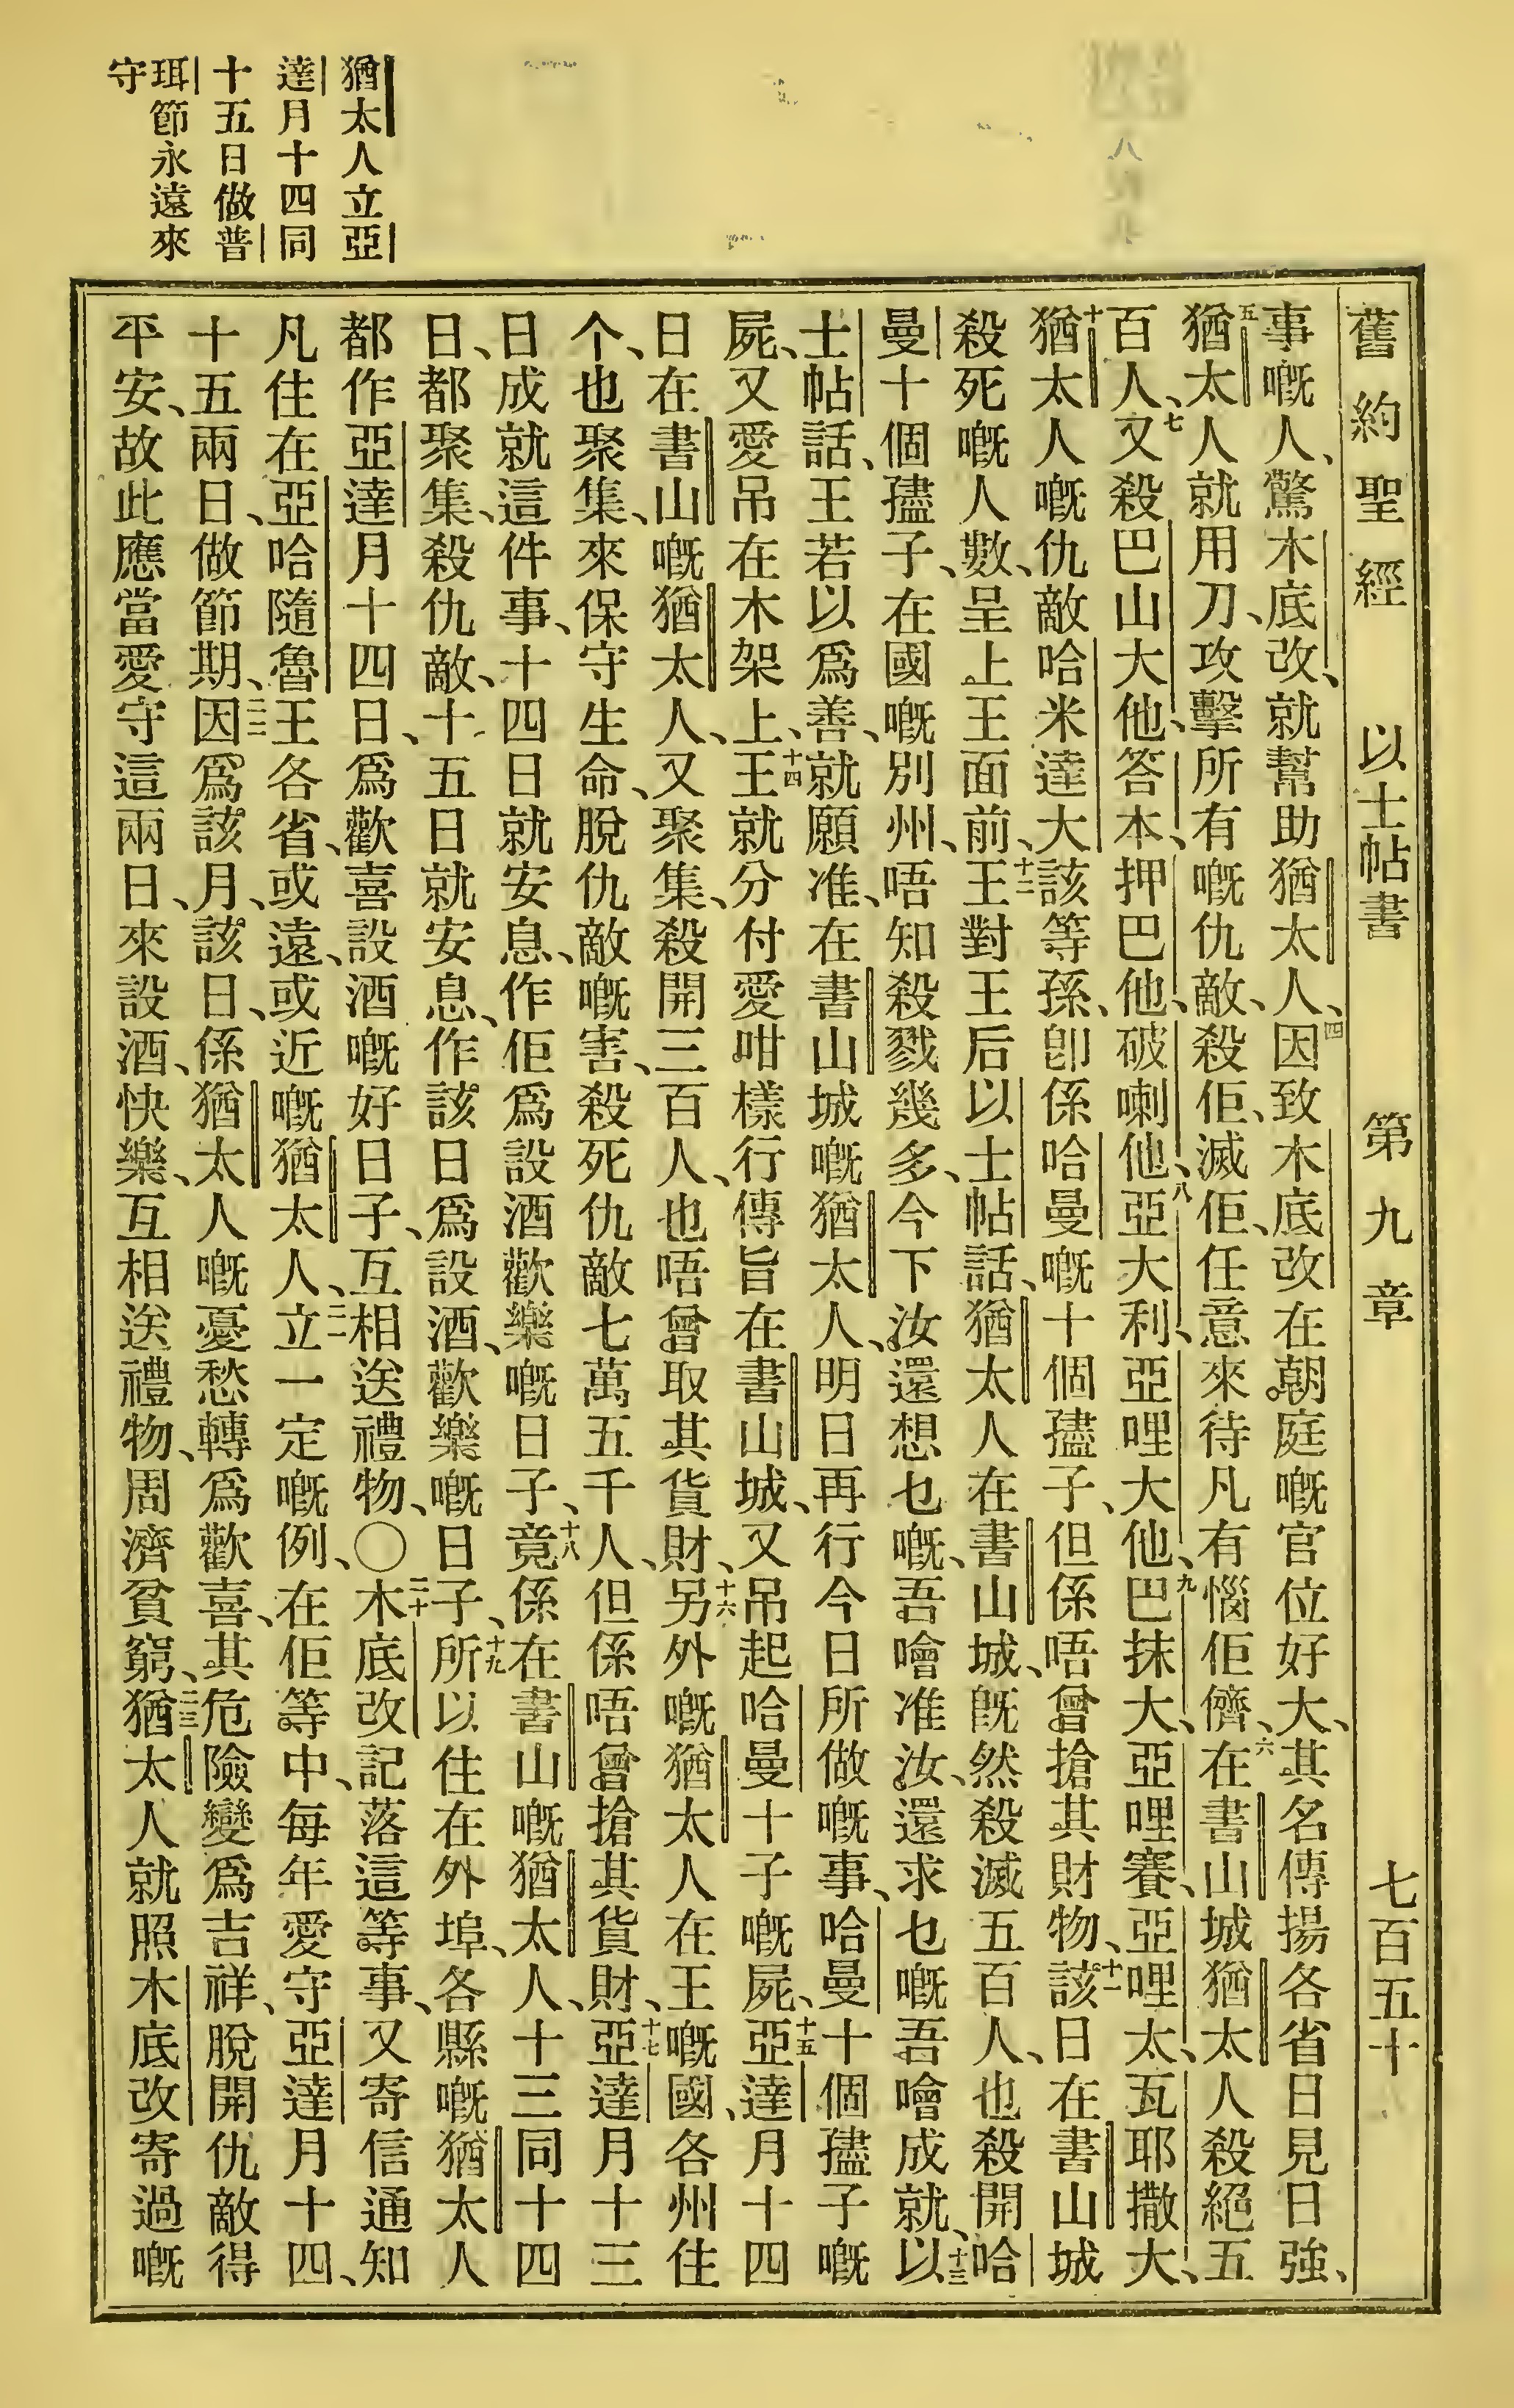 舊約聖經 以士帖書 第九章 七百五十
事嘅人、驚木底改、就幫助猶太人、四因致木底改在朝庭嘅官位好大、其名傳揚各省日見日強、
五猶太人就用刀、攻擊所有嘅仇敵、殺佢、滅佢、任意來待凡有惱佢儕、六在書山城猶太人殺絕五
百人、七又殺巴山大他、答本、押巴他、破喇他、八亞大利、亞哩大他、九巴抹大、亞哩賽、亞哩太、瓦耶撒大、
十猶太人嘅仇敵哈米達大該等孫、卽係哈曼嘅十個孻子、但係唔曾搶其財物、十一該日在書山城
殺死嘅人數、呈上王面前、十二王對王后以士帖話、猶太人在書山城、旣然殺滅五百人、也殺開哈
曼十個孻子、在國嘅別州、唔知殺戮幾多、今下汝還想乜嘅、吾噲准汝、還求乜嘅吾噲成就、十三以
士帖話、王若以爲善、就願准、在書山城嘅猶太人、明日再行今日所做嘅事、哈曼十個孻子嘅
屍、又愛吊在木架上、十四王就分付愛咁樣行傳旨在書山城、又吊起哈曼十子嘅屍、十五亞達月十四
日在書山嘅猶太人、又聚集、殺開三百人、也唔曾取其貨財、十六另外嘅猶太人在王嘅國、各州住
个、也聚集、來保守生命、脫仇敵嘅害、殺死仇敵七萬五千人、但係唔曾搶其貨財、十七亞達月十三
日成就這件事、十四日就安息、作佢爲設酒歡樂嘅日子、十八竟係在書山嘅猶太人、十三同十四
日、都聚集、殺仇敵、十五日就安息、作該日爲設酒、歡樂嘅日子、十九所以住在外埠、各縣嘅猶太人
都作亞達月十四日、爲歡喜設酒嘅好日子、互相送禮物、〇二十木底改記落這等事、又寄信通知
凡住在亞哈隨魯王各省、或遠、或近嘅猶太人、二一立一定嘅例、在佢等中、每年愛守亞達月十四、
十五兩日、做節期、二二因爲該月、該日、係猶太人嘅憂愁轉爲歡喜、其危險變爲吉祥、脫開仇敵得
平安、故此應當愛守這兩日、來設酒、快樂、互相送禮物、周濟貧窮、二三猶太人就照木底改寄過嘅
猶太人立亞
達月十四同
十五日做普
珥節永遠來
守